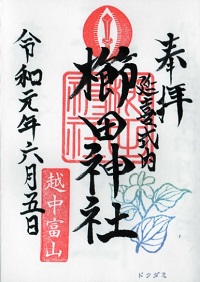 奉拝
延喜式内
櫛田神社
令和元年六月五日
越中富山
ドクダミ